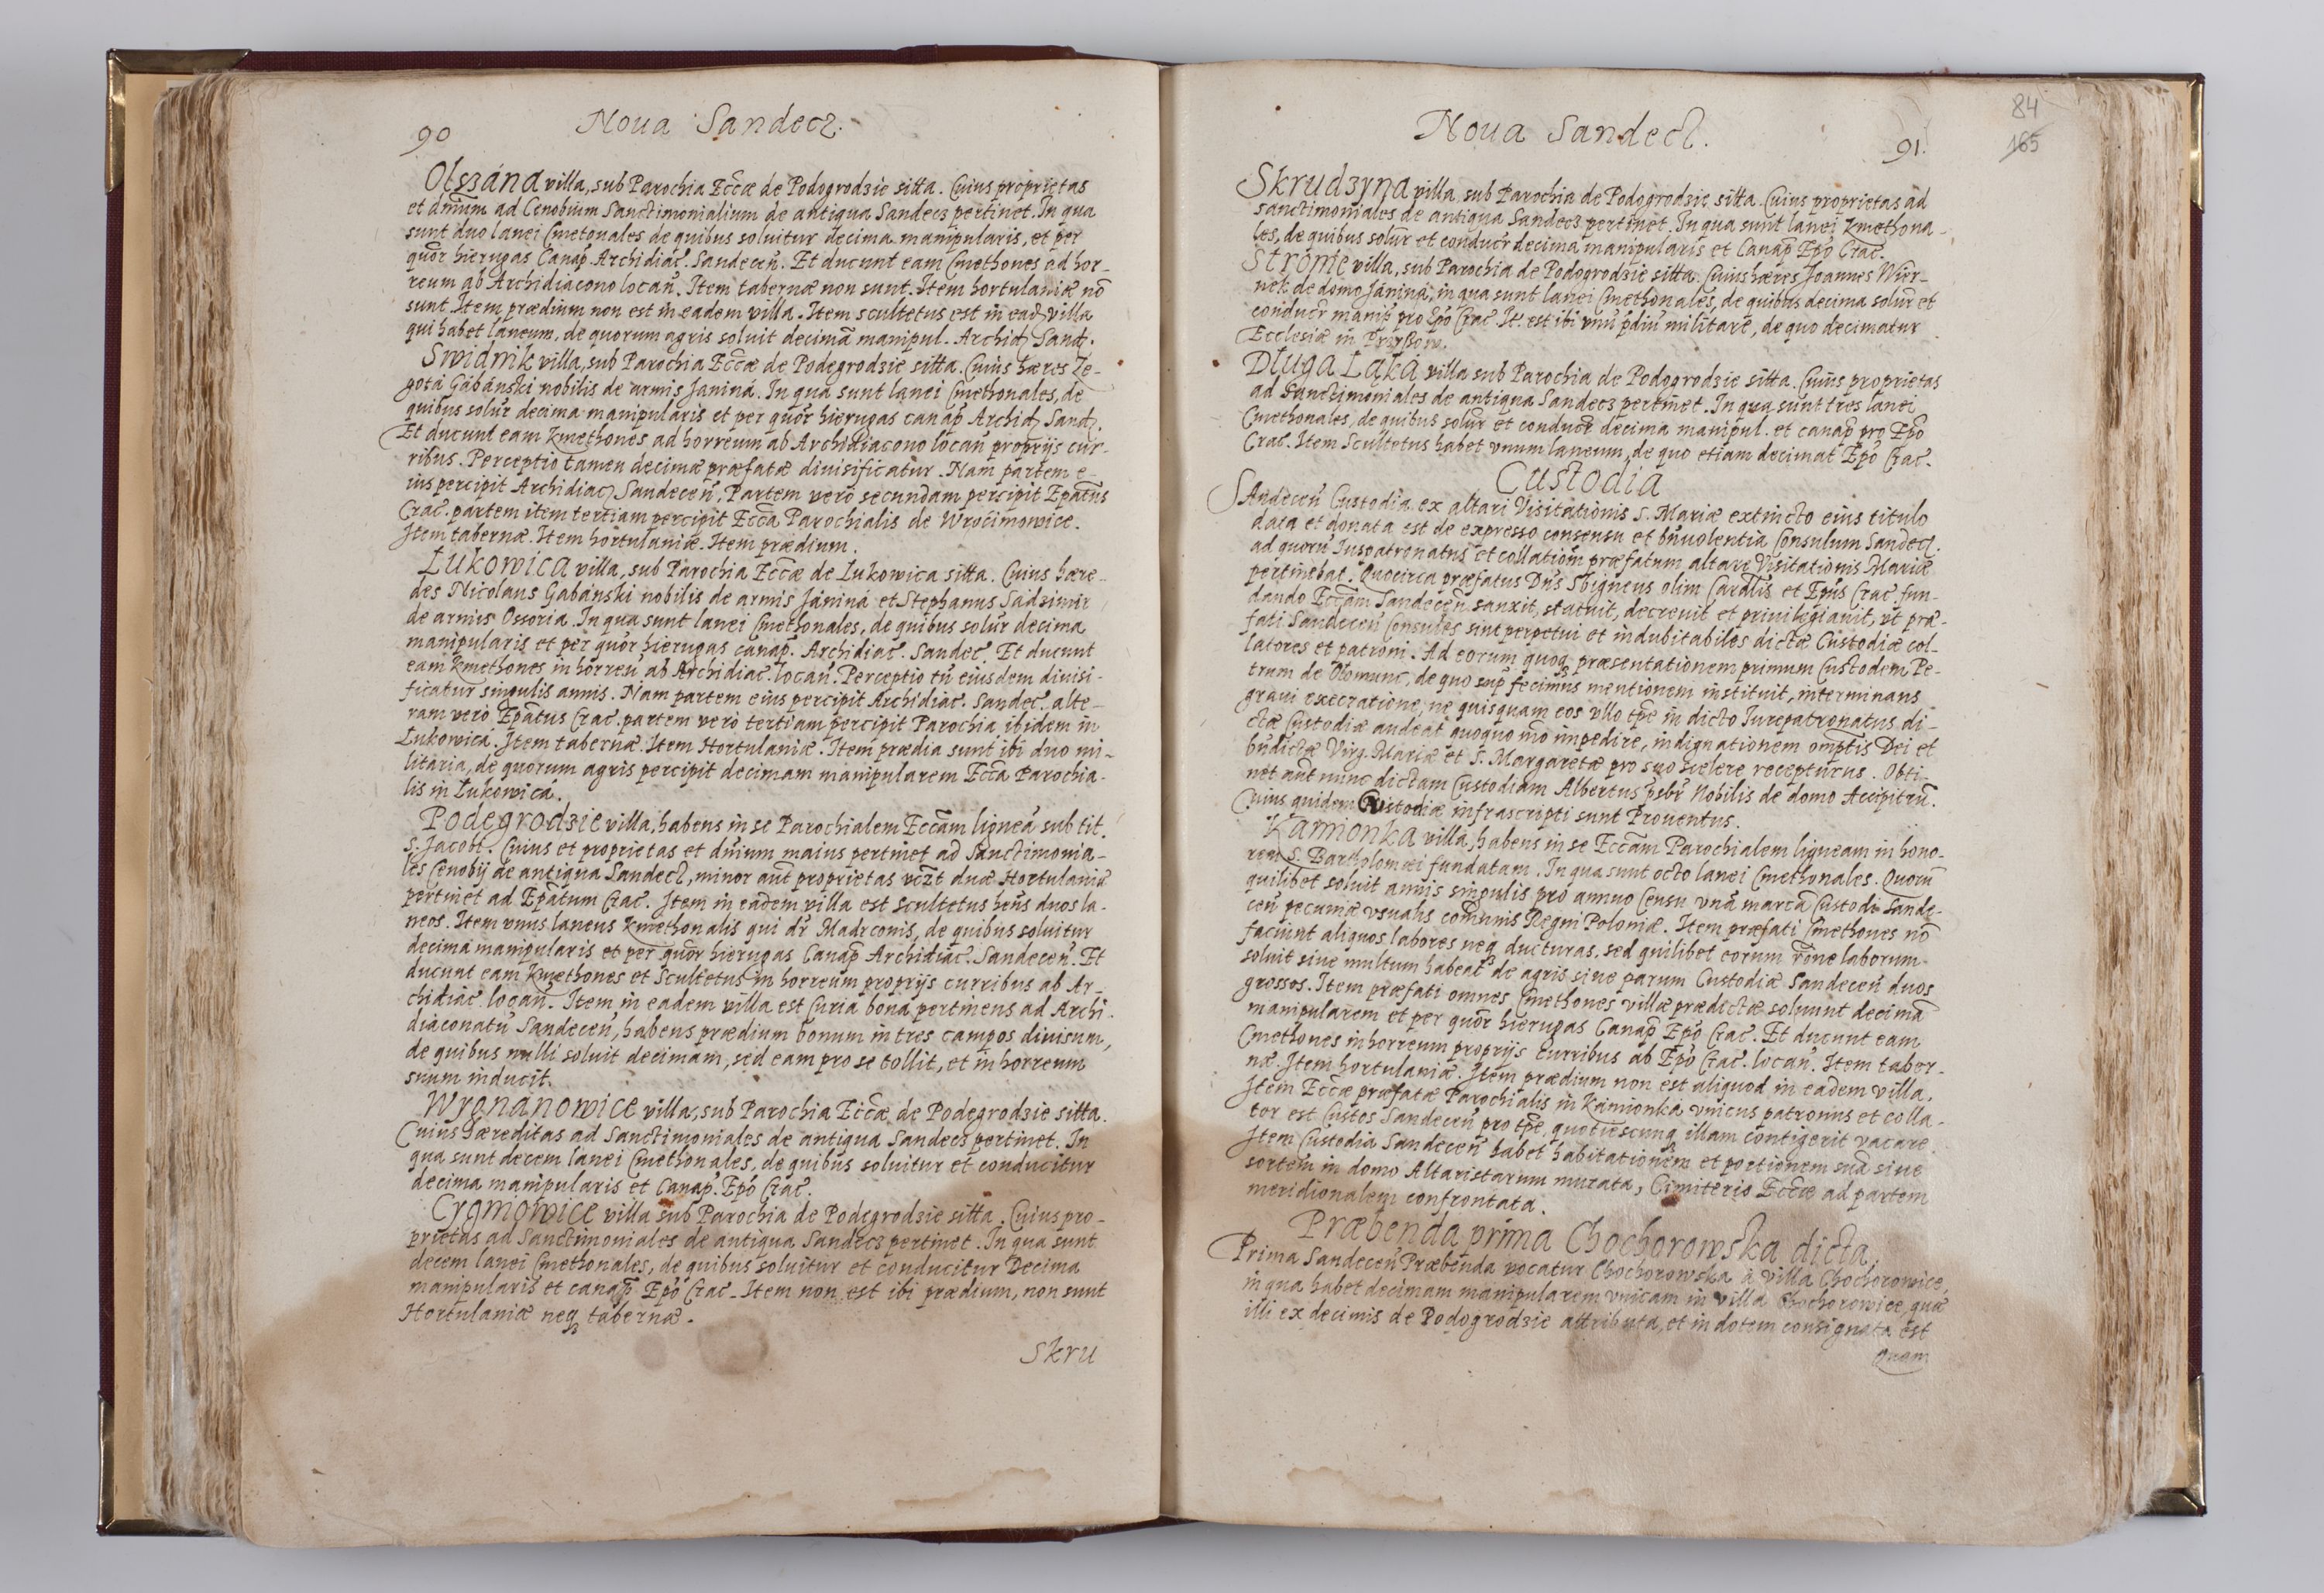 90
Noua Sandecz.
Olszána villa, sub Parochia Eccæ de Podogrodzie sitta. Cuius proprietas
et dnium ad Cenobium Sanctimonialium de antiqua Sandecz pertinet. In qua
sunt duo lanei Cmetonales de quibus soluitur decima manipularis, et per
quor hierugas Canap. Archidiac. Sandecen. Et ducunt eam Cmethones ad hor-
reum ab Archidiacono locan. Item tabernæ non sunt. Item hortulaniæ no
sunt. Item prædium non est in eadem villa. Item scultetus est in ead villa
qui habet laneum, de quorum agris soluit decimā manipul. Archid Sand.
Swidnik villa, sub Parochia Eccæ de Podegrodzie sitta. Cuius hæres Ze-
gotá Gábánski nobilis de armis Janiná. In qua sunt lanei Cmethonales, de
quibus solur decima manipularis et per quor hierugas canap Archid Sand.
Et ducunt eam kmethones ad horreum ab Archidiacono locan proprijs cur-
ribus. Perceptio tamen decimæ præfatæ diuisificatur. Nam partem e-
ius percipit Archidiac Sandecen, Partem vero secundam percipit Epatus
Crac. partem item tertiam percipit Ecca Parochialis de Wrocimowice.
Item tabernæ. Item hortulaniæ. Item prædium.
Łukowica villa, sub Parochia Eccæ de Łukowica sitta. Cuius hære-
des Nicolaus Gabánski nobilis de armis Jániná et Stephanus Sádzimir
de armis Ossoria. In qua sunt lanei Cmethonales, de quibus solur decima
manipularis et per quor hierugas canap. Archidiac. Sandec. Et ducunt
eam kmethones in horreu ab Archidiac. locan. Perceptio tn eiusdem diuisi-
ficatur singulis annis. Nam partem eius percipit Archidiac. Sandec. alte-
ram verò Epatus Crac. partem verò tertiam percipit Parochia ibidem in
Łukowica. Item tabernæ. Item Hortulaniæ. Item prædia sunt ibi duo mi-
litaria, de quorum agris percipit decimam manipularem Ecca Parochia-
lis in Łukowica.
Podegrodzie villa, habens in se Parochialem Eccam ligneā sub tit.
S. Jacobi. Cuius et proprietas et dnium maius pertinet ad Sanctimonia-
les Cenobij de antiqua Sandecz, minor aut proprietas vczt duæ Hortulaniæ
pertinet ad Epatum Crac. Item in eadem villa est Scultetus hens duos la-
neos. Item vnus laneus kmethonalis qui dr Madrconis, de quibus soluitur
decima manipularis et per quor hierugas Canap Archidiac. Sandecen. Et
ducunt eam kmethones et Scultetus in horreum proprijs curribus ab Ar-
chidiac locan. Item in eadem villa est Curia bona pertinens ad Archi-
diaconatū Sandecen, habens prædium bonum in tres campos diuisum,
de quibus nulli soluit decimam, sed eam pro se tollit, et in horreum
suum inducit.
Wygnanowice villa, sub Parochia Eccæ de Podegrodzie sitta.
Cuius hæreditas ad Sanctimoniales de antiqua Sandecz pertinet. In
qua sunt decem lanei Cmethonales, de quibus soluitur et conducitur
decima manipularis et Canap. Epo Crac.
Cygmowice villa sub Parochia de Podegrodzie sitta. Cuius pro-
prietas ad Sanctimoniales de antiqua Sandecz pertinet. In qua sunt
decem lanei Cmethonales, de quibus soluitur et conducitur Decima
manipularis et canap Epo Crac. Item non est ibi prædium, non sunt
Hortulaniæ neq tabernæ.
Skru
Noua Sandecz.
91.
84
165
Skrudzyna villa sub Parochia de Podogrodzie sitta. Cuius proprietas ad
sanctimoniales de antiqua Sandecz pertinet. In qua sunt lanei kmethona-
les, de quibus solur et conducr decima manipularis et Canap Epo Crac.
Stronie villa, sub Parochia de Podogrodzie sitta. Cuius hæres Joannes Wier-
nek de domo Jániná, in qua sunt lanei Cmethonales, de quibus decima solur et
conducr manip pro Epo Crac. It. est ibi vnu pdiu militare, de quo decimatur
Ecclesiæ in
Długa Łąká villa sub Parochia de Podogrodzie sitta. Cuius proprietas
ad Sanctimoniales de antiqua Sandecz pertinet. In qua sunt tres lanei
Cmethonales, de quibus solur et conducr decima manipul. et canap pro Epo
Crac. Item Scultetus habet vnum laneum, de quo etiam decimat Epo Crac.
Custodia
SAndecen Custodia ex altari Visitationis S. Mariæ extincto eius titulo
data et donata est de expresso consensu et bnuolentia Consulum Sandecz.
ad quoru Juspatronatus et collatiom præfatum altare Visitationis Mariæ
pertinebat. Quocirca præfatus Dns Sbigneus olim Caralis et Epus Crac. fun-
dando Eccam Sandecen sanxit, statuit, decreuit et priuilegiauit, vt præ-
fati Sandecen Consules sint perpetui et indubitabiles dictæ Custodiæ col-
latores et patroni. Ad eorum quoq præsentationem primum Custodem Pe-
trum de Olomunc, de quo sup fecimus mentionem instituit, interminans
graui execratione, ne quisquam eos vllo tpe in dicto Jurepatronatus di-
ctæ Custodiæ audeat quoquo mo impedire, indignationem omptis Dei et
bndictæ Virg. Mariæ et S. Margaretæ pro suo scelere recepturus. Obti-
net aut nunc dictam Custodiam Albertus psbr Nobilis de domo Accipitru.
Cuius quidem Custodiæ infrascripti sunt Prouentus.
Kamionka villa, habens in se Eccam Parochialem ligneam in hono-
rem S. Bartholomæi fundatam. In qua sunt octo lanei Cmethonales. Quoru
quilibet soluit annis singulis pro annuo Censu vnā marcā Custodi Sande-
cen pecuniæ vsualis comunis Regni Poloniæ. Item præfati Cmethones no
faciunt aliquos labores neq ducturas, sed quilibet eorum rone laborum
soluit siue multum habeat de agris siue parum Custodiæ Sandecen duos
grossos. Item præfati omnes Cmethones villæ prædictæ soluunt decimā
manipularem et per quor hierugas Canap Epo Crac. Et ducunt eam
Cmethones in horreum proprijs curribus ab Epo Crac. locan. Item taber-
næ. Item hortulaniæ. Item prædium non est aliquod in eadem villa.
Item Eccæ præfatæ Parochialis in Kámionká vnicus patronus et colla-
tor est Custos Sandecen pro tpe, quotiescunq illam contigerit vacare.
Item Custodia Sandecen habet habitationem et portionem suā siue
sortem in domo Altaristarum murata, Cimiterio Eccæ ad partem
meridionalem confrontata.
Præbenda prima Chochorowska dicta,
Prima Sandecen Præbenda vocatur Chochorowska à villa Chochorowice,
in qua habet decimam manipularem vnicam in villa Chochorowice, quæ
illi ex decimis de Podogrodzie attributa, et in dotem consignata est
Quam